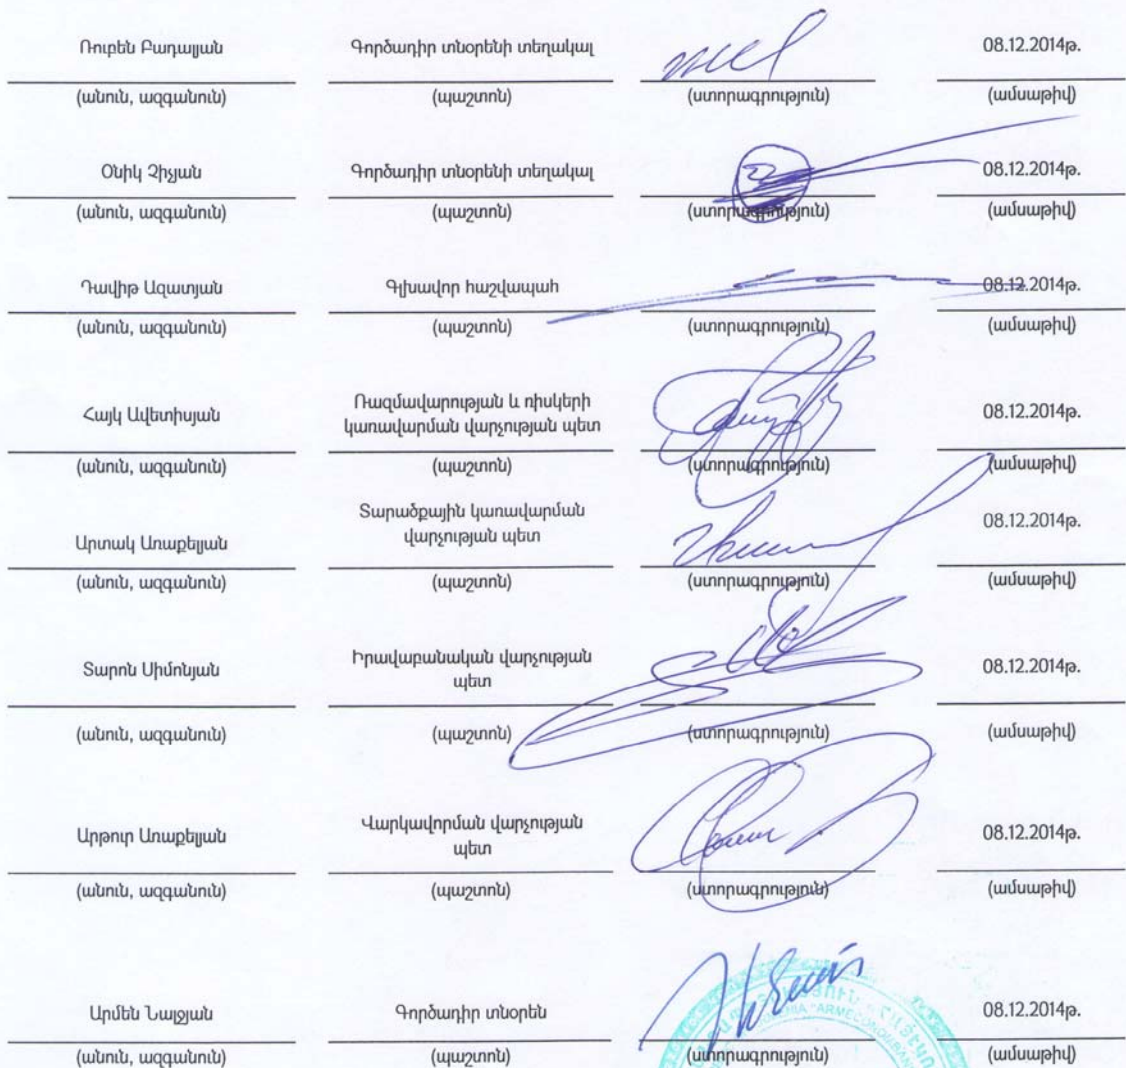 Ռուբեն Բադալյան Գործադիր տնօրենի տեղակալ 08.12.2014թ.
(անուն, ազգանուն) (պաշտոն) (ստորագրություն) (ամսաթիվ)
Օնիկ Չիչյան Գործադիր տնօրենի տեղակալ 08.12.2014թ.
(անուն, ազգանուն) (պաշտոն) (ստորագրություն) (ամսաթիվ)
Դավիթ Ազատյան Գլխավոր հաշվապահ 08.12.2014թ.
(անուն, ազգանուն) (պաշտոն) (ստորագրություն) (ամսաթիվ)
Հայկ Ավետիսյան Ռազմավարության և ռիսկերի
կառավարման վարչության պետ 08.12.2014թ.
(անուն, ազգանուն) (պաշտոն) (ստորագրություն) (ամսաթիվ)
Տարածքային կառավարման
Արտակ Առաքելյան վարչության պետ 08.12.2014թ.
(անուն, ազգանուն) (պաշտոն) (ստորագրություն) (ամսաթիվ)
Տարոն Սիմոնյան Իրավաբանական վարչության
պետ 08.12.2014թ.
(անուն, ազգանուն) (պաշտոն) (ստորագրություն) (ամսաթիվ)
Արթուր Առաքելյան Վարկավորման վարչության
պետ 08.12.2014թ.
(անուն, ազգանուն) (պաշտոն) (ստորագրություն) (ամսաթիվ)
Արմեն Նալջյան Գործադիր տնօրեն 08.12.2014թ.
(անուն, ազգանուն) (պաշտոն) (ստորագրություն) (ամսաթիվ)